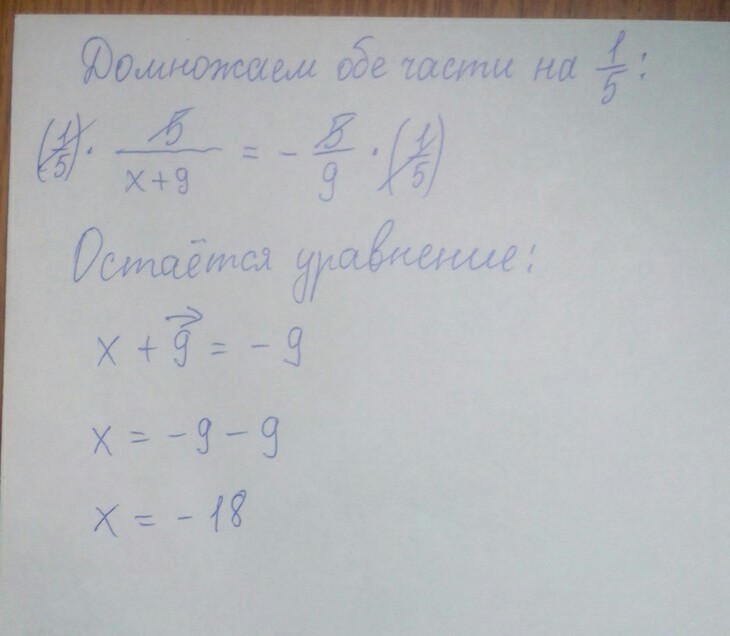 Домножаем обе части на 1/5:
(1/5) · 5/(x+9) = - 5/9 · (1/5)
Остаётся уравнение:
x + 9 = - 9
x = - 9 - 9
x = - 18